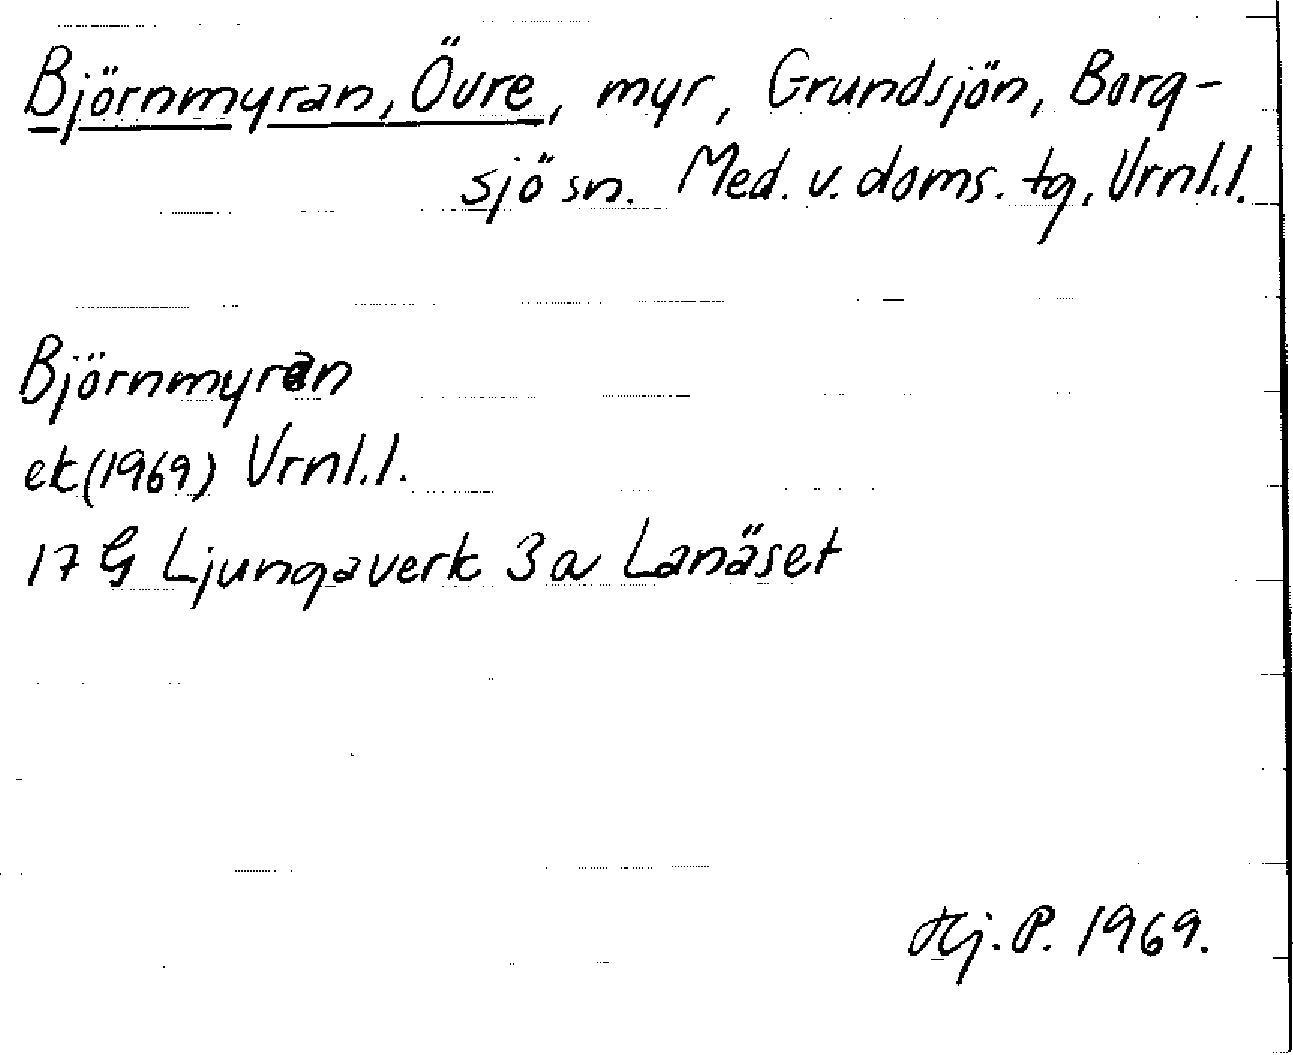 Björnmyran, Övre, myr, Grundsjön, Borg-
sjö sn. Med. v. doms. tg, Vrnl.l.
Björnmyran
ek (1969) Vrnl.l.
17 G Ljungaverk 3a Lanäset
Hj. P. 1969.